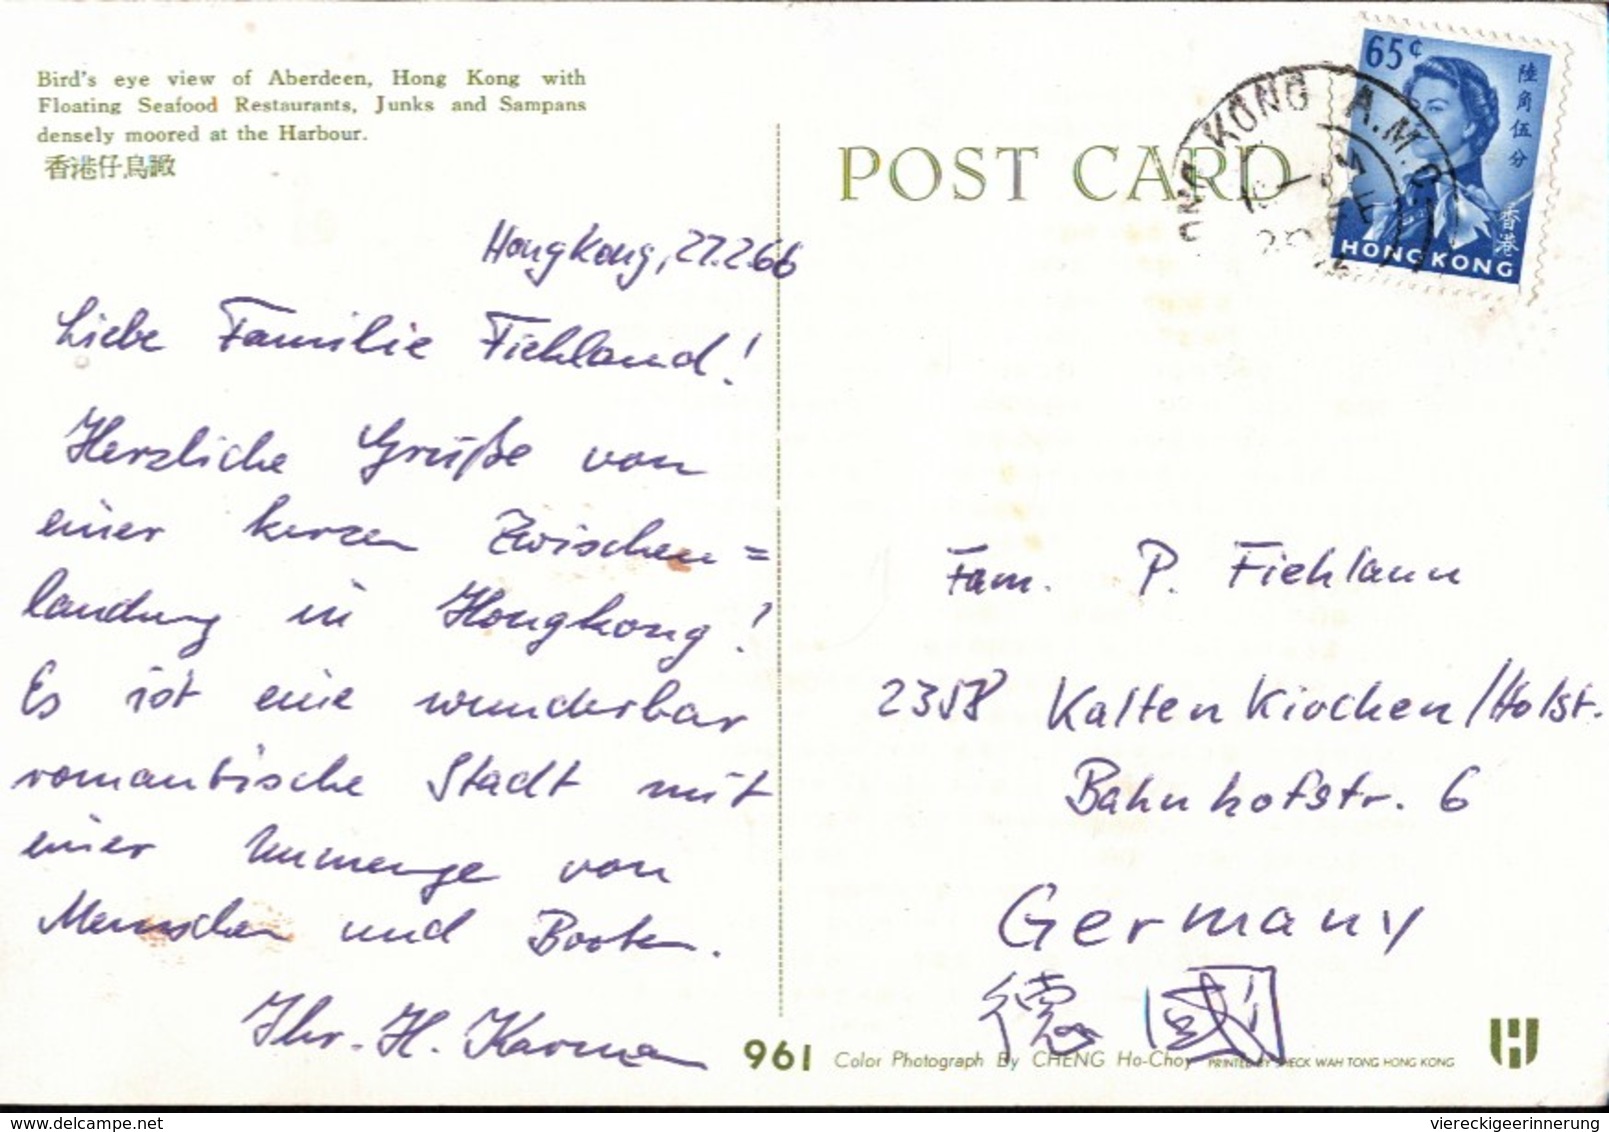 Bird's eye view of Aberdeen, Hong Kong with
Floating Seafood Restaurants, Junks and Sampans
densely moored at the Harbour.
香港仔鳥瞰
POST CARD
65¢
陸角伍分
香港
HONG KONG
KONG A.M.
Hongkong, 27.2.66
Liebe Familie Fiehland!
Herzliche Grüße von
einer kurzen Zwischen=
landung in Hongkong!
Es ist eine wunderbar
romantische Stadt mit
einer Unmenge von
Menschen und Booten.
Ihr. H.
Fam. P. Fiehlann
2358 Kaltenkirchen/Holst.
Bahnhofstr. 6
Germany
德國
961 Color Photograph By CHENG Ho-Choy PRINTED BY SHECK WAH TONG HONG KONG
www.delcampe.net
viereckigeerinnerung